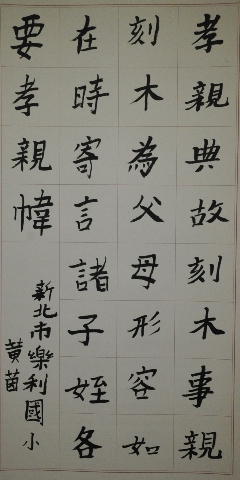 孝親典故刻木事親
刻木為父母形容如
在時寄言諸子姪各
要孝親幃
新北市樂利國小
黄茵